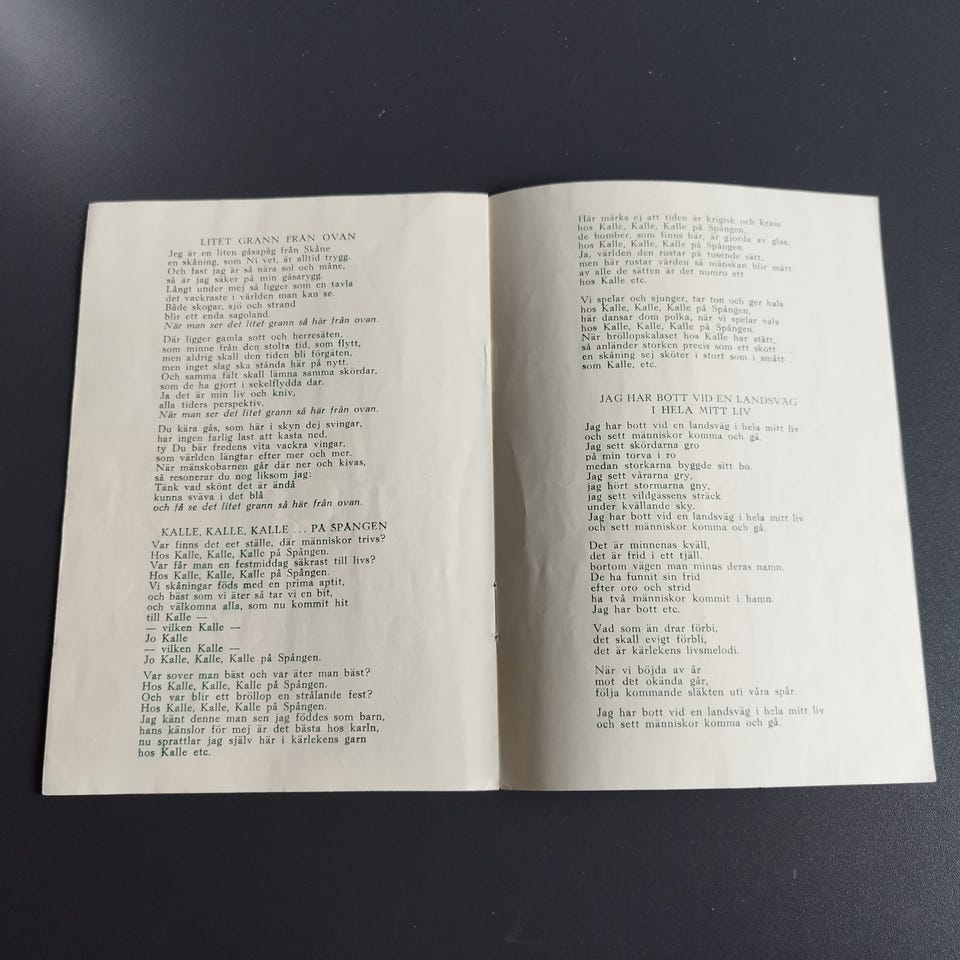 LITET GRANN FRÅN OVAN
Jeg är en liten gåsapåg från Skåne
en skåning, som Ni vet, är alltid trygg.
Och fast jag är så nära sol och måne,
så är jag säker på min gåsarygg.
Långt under mej så ligger som en tavla
det vackraste i världen man kan se.
Både skogar, sjö och strand
blir ett enda sagoland.
När man ser det litet grann så här från ovan.
Där ligger gamla sott och herresäten,
som minne från den stolta tid, som flytt,
men aldrig skall den tiden bli förgäten,
men inget slag ska stånda här på nytt.
Och samma fält skall lämna samma skördar,
som de ha gjort i sekelflydda dar.
Ja det är min liv och kniv,
alla tiders perspektiv.
När man ser det litet grann så här från ovan.
Du kära gås, som här i skyn dej svingar,
har ingen farlig last att kasta ned,
ty Du bär fredens vita vackra vingar,
som världen längtar efter mer och mer.
När mänskobarnen går där ner och kivas,
så resonerar du nog liksom jag:
Tänk vad skönt det är ändå
kunna sväva i det blå
och få se det litet grann så här från ovan.
KALLE, KALLE, KALLE ... PÅ SPÅNGEN
Var finns det eet ställe, där människor trivs?
Hos Kalle, Kalle, Kalle på Spången.
Var får man en festmiddag säkrast till livs?
Hos Kalle, Kalle, Kalle på Spången.
Vi skåningar föds med en prima aptit,
och bäst som vi äter så tar vi en bit,
och välkomna alla, som nu kommit hit
till Kalle —
— vilken Kalle —
Jo Kalle
— vilken Kalle —
Jo Kalle, Kalle, Kalle på Spången.
Var sover man bäst och var äter man bäst?
Hos Kalle, Kalle, Kalle på Spången.
Och var blir ett bröllop en strålande fest?
Hos Kalle, Kalle, Kalle på Spången.
Jag känt denne man sen jag föddes som barn,
hans känslor för mej är det bästa hos karln,
nu sprattlar jag själv här i kärlekens garn
hos Kalle etc.
Här märks ej att tiden är krigisk och krass
hos Kalle, Kalle, Kalle på Spången,
de bomber, som finns här, är gjorda av glas,
hos Kalle, Kalle, Kalle på Spången.
Ja, världen den rustar på tusende sätt,
men här rustar värden så mänskan blir mätt
av alle de sätten är det numro ett
hos Kalle etc.
Vi spelar och sjunger, tar ton och ger hals
hos Kalle, Kalle, Kalle på Spången,
här dansar dom polka, när vi spelar vals
hos Kalle, Kalle, Kalle på Spången.
När bröllopskalaset hos Kalle har stått,
så anländer storken precis som ett skott ...
en skåning sej sköter i stort som i smått .
som Kalle, etc.
JAG HAR BOTT VID EN LANDSVÄG
I HELA MITT LIV
Jag har bott vid en landsväg i hela mitt liv
och sett människor komma och gå.
Jag sett skördarna gro
på min torva i ro
medan storkarna byggde sitt bo.
Jag sett vårarna gry,
jag hört stormarna gny,
jag sett vildgässens sträck
under kvällande sky.
Jag har bott vid en landsväg i hela mitt liv
och sett människor komma och gå.
Det är minnenas kväll,
det är frid i ett tjäll.
bortom vägen man minas deras namn.
De ha funnit sin frid
efter oro och strid
ha två människor kommit i hamn.
Jag har bott etc.
Vad som än drar förbi,
det skall evigt förbli,
det är kärlekens livsmelodi.
När vi böjda av år
mot det okända går,
följa kommande släkten uti våra spår.
Jag har bott vid en landsväg i hela mitt liv
och sett människor komma och gå.